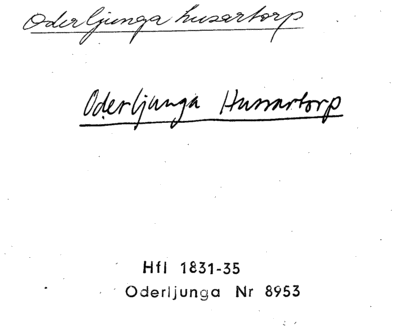 Oderljunga husartorp
Oderljunga Hussartorp
Hfl 1831-35
Oderljunga Nr 8953